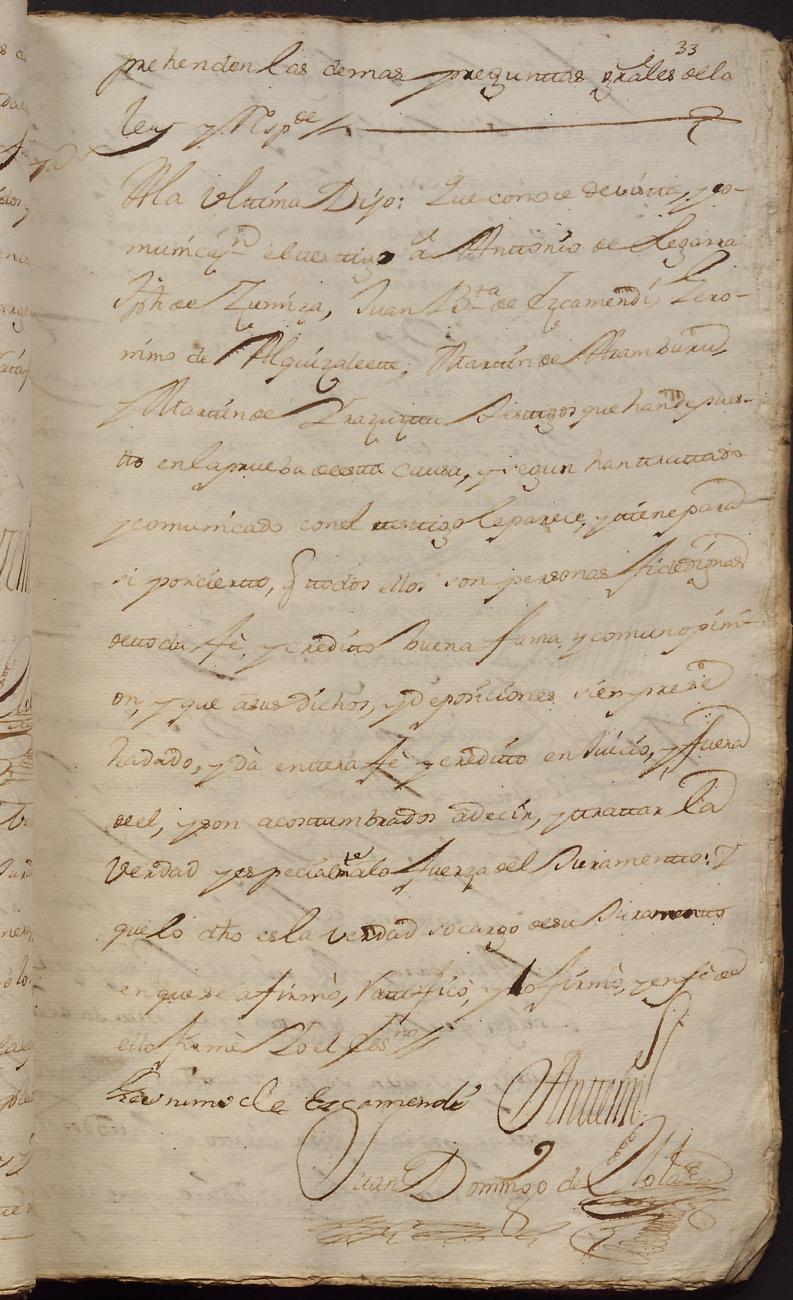 33
prehenden las demas preguntas grales de la
ley y Respde
A la Ultima Dijo: Que conoce de vista, y co-
municaon el testigo a Anttonio de Legarra
Jph de Zumiza, Juan Bta de Ezcamendi, Gero-
nimo de Alquizalette, Martin de Aramburu,
y Martin de Yrazuzta testigos que han depues-
tto en la prueba de esta causa, y segun han trattado
y comunicado con el testtigo le parece, y tiene para
si por cierto, q ttodos ellos son personas fidedignas
de ttoda fè y creditto buena fama y comun opini
on, y que a sus dichos, y deposiciones siempre se
ha dado, y dà enttera fè y creditto en Juicio, y fuera
de el, y son acostumbrados a decir, y trattar la
Verdad y especialmte a lo fuerza del Juramentto: Y
que lo dho es la verdad so cargo de su Juramento
en que se afirmò, ratificó, y lo firmò, y en fè de
ello firmè Yo el essno
Geronimo de Ezcamendi Antte mi
Juan Domingo de Olota